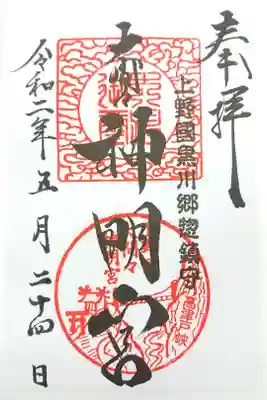 奉拝
上野國黒川郷惣鎮守
神明宮
令和二年五月二十四日
高津戸峡